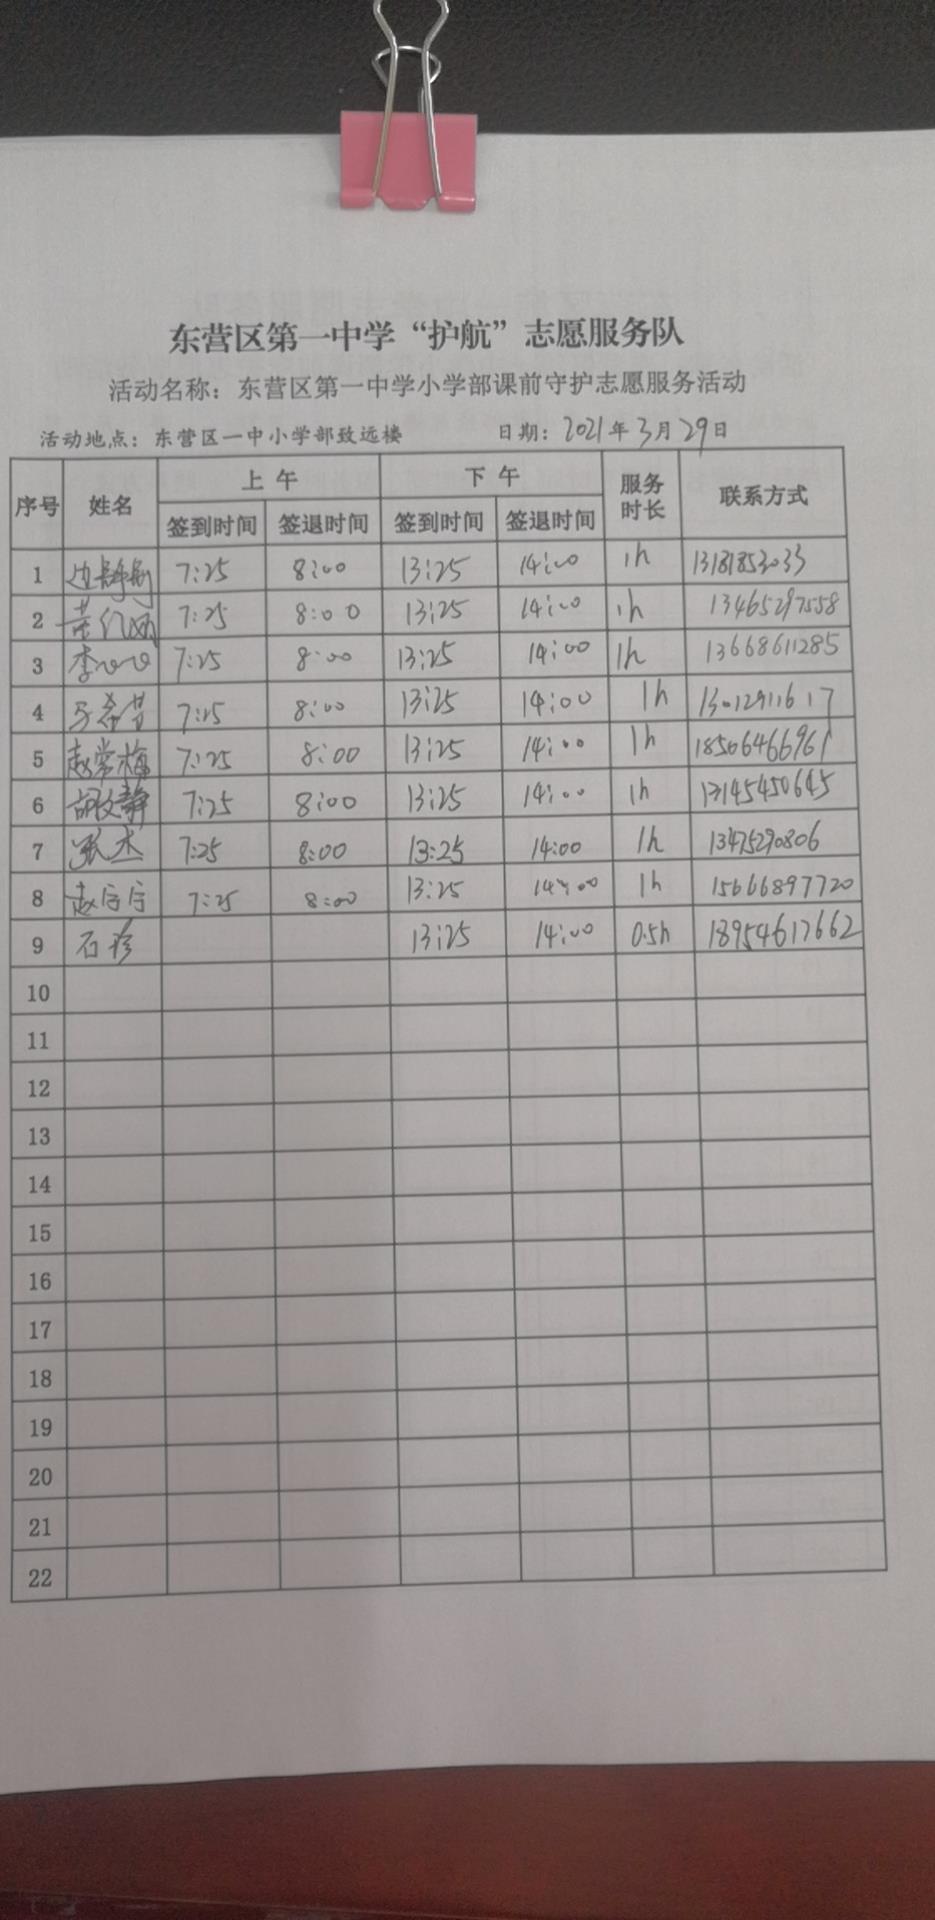 东营区第一中学“护航”志愿服务队
活动名称：东营区第一中学小学部课前守护志愿服务活动
活动地点：东营区一中小学部致远楼 日期：2021年3月29日
序号 姓名 上午 下午 服务时长 联系方式
签到时间 签退时间 签到时间 签退时间
1 7:25 8:00 13:25 14:00 1h 13181853033
2 7:25 8:00 13:25 14:00 1h 13465297558
3 李心心 7:25 8:00 13:25 14:00 1h 13668611285
4 7:25 8:00 13:25 14:00 1h 13012911617
5 赵常梅 7:25 8:00 13:25 14:00 1h 18506466961
6 胡文静 7:25 8:00 13:25 14:00 1h 13145450645
7 张杰 7:25 8:00 13:25 14:00 1h 13475290806
8 7:25 8:00 13:25 14:00 1h 15666897720
9 石珍 13:25 14:00 0.5h 18954617662
10
11
12
13
14
15
16
17
18
19
20
21
22